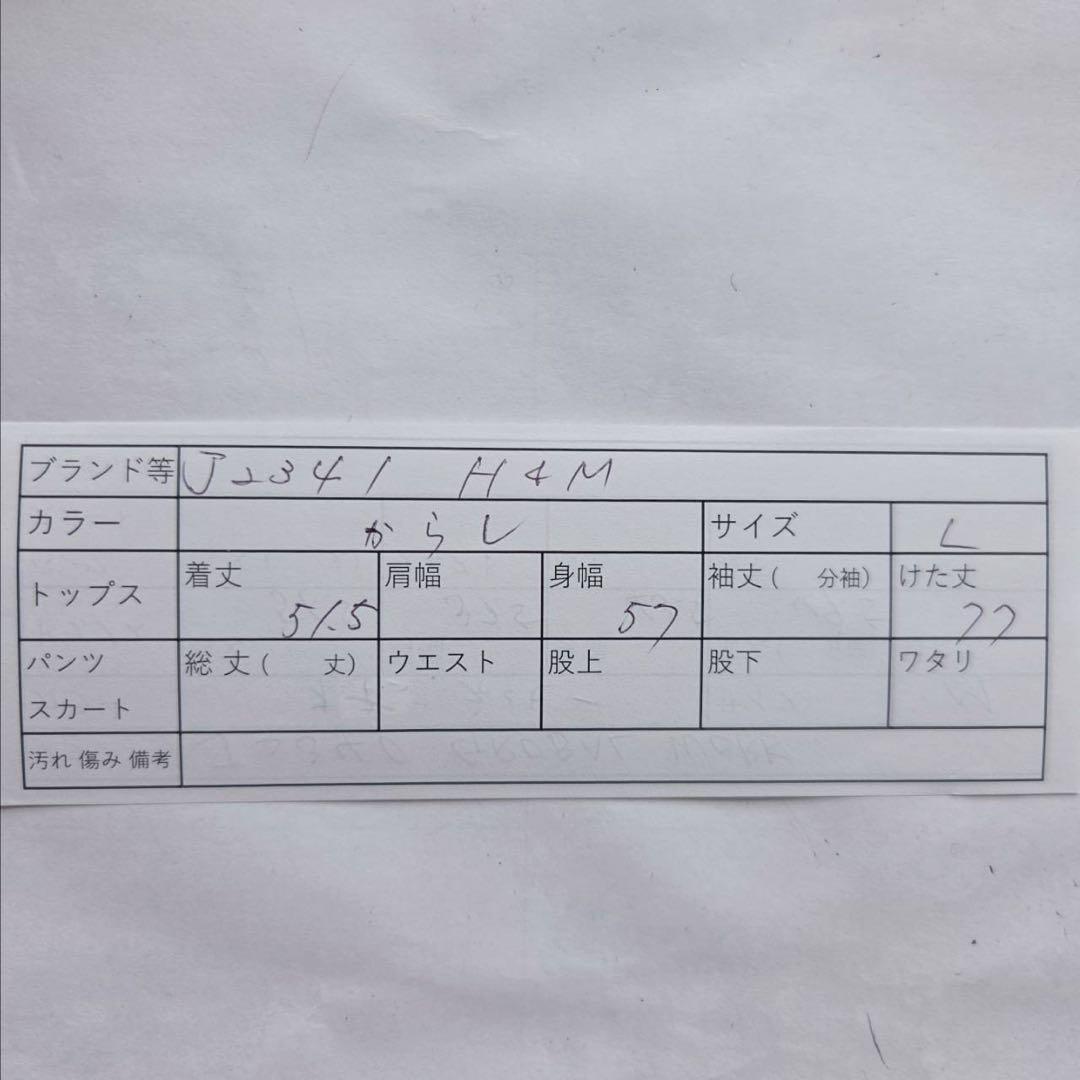 ブランド等 J2341 H&M
カラー からし サイズ L
トップス 着丈 51.5 肩幅 身幅 57 袖丈( 分袖) けた丈 77
パンツ 総丈( 丈) ウエスト 股上 股下 ワタリ
スカート
汚れ 傷み 備考